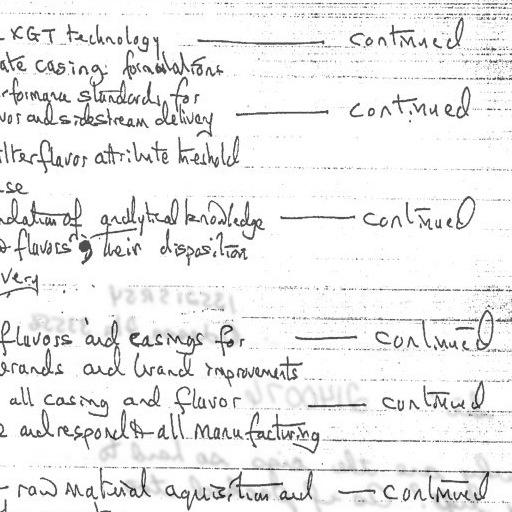 XGT technology — continued
ate casing formulations
rformance standards for
vor and sidestream delivery — continued
ilter flavor attribute threshold
se
ndation of analytical knowledge — continued
flavors; their disposition
very
flavors and casings for — continued
brands and brand improvements
all casing and flavor — continued
and respond to all manufacturing
raw material aquisition and — continued